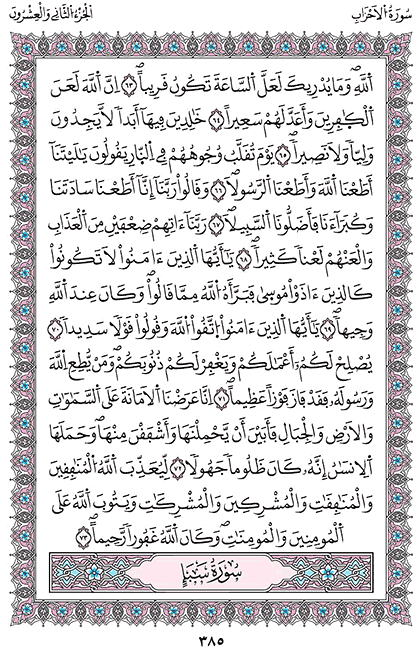 سُورَةُ اُ۬لَاحْزَابِ
اَ۬لْجُزْءُ الثَّانِي وَالْعِشْرُونَ
اَ۬للَّهِۖ وَمَا يُدْرِيكَ لَعَلَّ اَ۬لسَّاعَةَ تَكُونُ قَرِيباًۖ ٦٣ اِنَّ اَ۬للَّهَ لَعَنَ
اَ۬لْكٰ۪فِرِينَ وَأَعَدَّ لَهُمْ سَعِيراً ٦٤ خَٰلِدِينَ فِيهَا أَبَداٗ لَّا يَجِدُونَ
وَلِيّاٗ وَلَا نَصِيراٗۖ ٦٥ يَوْمَ تُقَلَّبُ وُجُوهُهُمْ فِي اِ۬لنّ۪ارِ يَقُولُونَ يَٰلَيْتَنَا
أَطَعْنَا اَ۬للَّهَ وَأَطَعْنَا اَ۬لرَّسُولَاۖ ٦٦ وَقَالُواْ رَبَّنَا إِنَّا أَطَعْنَا سَادَتَنَا
وَكُبَرَآءَنَا فَأَضَلُّونَا اَ۬لسَّبِيلَاۖ ٦٧ رَبَّنَا ءَاتِهِمْ ضِعْفَيْنِ مِنَ اَ۬لْعَذَابِ
وَالْعَنْهُمْ لَعْناٗ كَثِيراٗۖ ٦٨ يَٰٓأَيُّهَا اَ۬لذِينَ ءَامَنُواْ لَا تَكُونُواْ
كَالذِينَ ءَاذَوْاْ مُوس۪يٰ فَبَرَّأَهُ اُ۬للَّهُ مِمَّا قَالُواْۖ وَكَانَ عِندَ اَ۬للَّهِ
وَجِيهاٗۖ ٦٩ يَٰٓأَيُّهَا اَ۬لذِينَ ءَامَنُواْ اُ۪تَّقُواْ اُ۬للَّهَ وَقُولُواْ قَوْلاٗ سَدِيداٗ ٧٠
يُصْلِحْ لَكُمُۥٓ أَعْمَٰلَكُمْ وَيَغْفِرْ لَكُمْ ذُنُوبَكُمْۖ وَمَنْ يُّطِعِ اِ۬للَّهَ
وَرَسُولَهُۥ فَقَدْ فَازَ فَوْزاً عَظِيماًۖ ٧١ اِنَّا عَرَضْنَا اَ۬لَامَانَةَ عَلَي اَ۬لسَّمَٰوَٰتِ
وَالَارْضِ وَالْجِبَالِ فَأَبَيْنَ أَنْ يَّحْمِلْنَهَا وَأَشْفَقْنَ مِنْهَاۖ وَحَمَلَهَا
اَ۬لِانسَٰنُ إِنَّهُۥ كَانَ ظَلُوماٗ جَهُولاٗ ٧٢ لِّيُعَذِّبَ اَ۬للَّهُ اُ۬لْمُنَٰفِقِينَ
وَالْمُنَٰفِقَٰتِ وَالْمُشْرِكِينَ وَالْمُشْرِكَٰتِ وَيَتُوبَ اَ۬للَّهُ عَلَي
اَ۬لْمُومِنِينَ وَالْمُومِنَٰتِۖ وَكَانَ اَ۬للَّهُ غَفُوراٗ رَّحِيماٗۖ ٧٣
سُورَةُ سَبَإٖ
٣٨٥